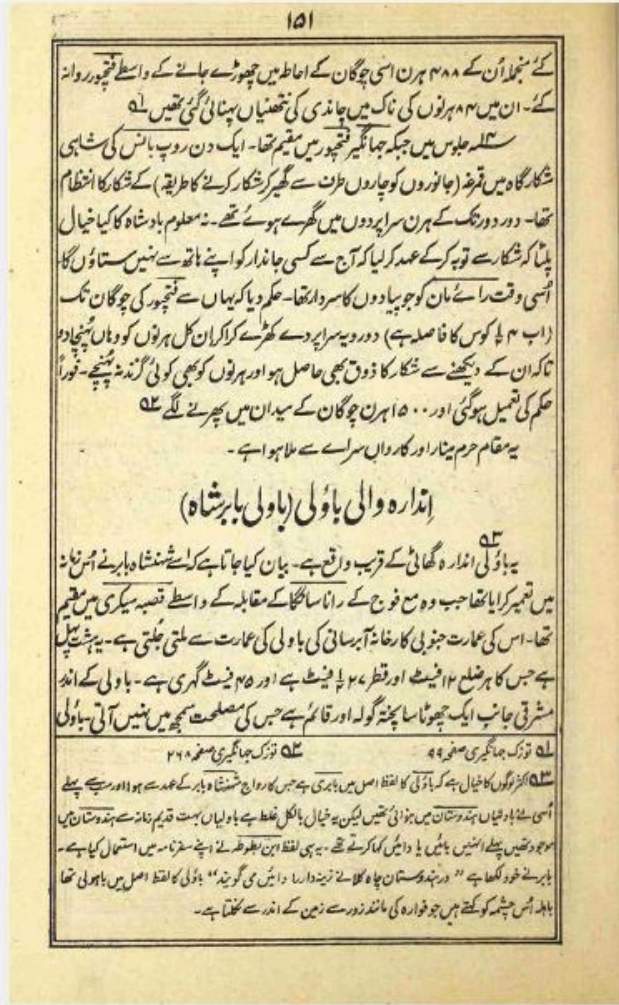 ۱۵۱
کئے منجملہ اُن کے ۴۸۸ ہرن اسی چوگان کے احاطہ میں چھوڑے جانے کے واسطے فتحپور روانہ
کئے۔ ان میں ۸۴ ہرنوں کی ناک میں چاندی کی نتھنیاں پہنائی گئی تھیں ۵۱
۱۴؁ جلوس میں جبکہ جہانگیر فتحپور میں مقیم تھا۔ ایک دن روپ بانس کی شاہی
شکارگاہ میں قمرغہ (جانوروں کو چاروں طرف سے گھیر کر شکار کرنے کا طریقہ) کے شکار کا انتظام
تھا۔ دور دور تک کے ہرن سراپردوں میں گھرے ہوئے تھے۔ نہ معلوم بادشاہ کا کیا خیال
پلٹا کہ شکار سے توبہ کر کے عہد کر لیا کہ آج سے کسی جاندار کو اپنے ہاتھ سے نہیں ستاؤں گا۔
اُسی وقت رائے مان کو جو پیادوں کا سردار تھا۔ حکم دیا کہ یہاں سے فتحپور کی چوگان تک
(اب ۴½ کوس کا فاصلہ ہے) دورویہ سراپردے کھڑے کرا کر ان کل ہرنوں کو وہاں پہنچا دو
تاکہ ان کے دیکھنے سے شکار کا ذوق بھی حاصل ہو اور ہرنوں کو بھی کوئی گزند نہ پہنچے۔ فوراً
حکم کی تعمیل ہو گئی اور ۱۵۰۰ ہرن چوگان کے میدان میں پھرنے لگے ۵۲
یہ مقام حرم مینار اور کارواں سرائے سے ملا ہوا ہے۔
اِندارہ والی باؤلی (باولی بابر شاہ)
یہ باؤلی ۵۳ اندارہ گھاٹی کے قریب واقع ہے۔ بیان کیا جاتا ہے کہ اسے شہنشاہ بابر نے اُس زمانہ
میں تعمیر کرایا تھا جب وہ مع فوج کے رانا سانگا کے مقابلہ کے واسطے قصبہ سیکری میں مقیم
تھا۔ اس کی عمارت جنوبی کارخانہ آبرسانی کی باولی کی عمارت سے ملتی جُلتی ہے۔ یہ ہشت پہل
ہے جس کا ہر ضلع ۱۲ فیٹ اور قطر ۲۷½ فیٹ ہے اور ۴۵ فیٹ گہری ہے۔ باولی کے اندر
مشرقی جانب ایک چھوٹا سا پختہ گولہ اور قائم ہے جس کی مصلحت سمجھ میں نہیں آتی۔ باؤلی
۵۱ توزک جہانگیری صفحہ ۹۹ ۵۲ توزک جہانگیری صفحہ ۲۶۸
۵۳ اکثر لوگوں کا خیال ہے کہ باؤلی کا لفظ اصل میں بابری ہے جس کا رواج شہنشاہ بابر کے عہد سے ہوا اور سب سے پہلے
اُسی نے باؤلیاں ہندوستان میں بنوائی تھیں لیکن یہ خیال بالکل غلط ہے باولیاں بہت قدیم زمانہ سے ہندوستان میں
موجود تھیں پہلے انہیں بائیں یا وائیں کہا کرتے تھے۔ یہی لفظ ابن بطوطہ نے اپنے سفرنامہ میں استعمال کیا ہے۔
بابر نے خود لکھا ہے ”در ہندوستان چاہ کلانے زینہ دار را وائیں می گویند“ باؤلی کا لفظ اصل میں باہولی تھا
باہلہ اُس چشمہ کو کہتے ہیں جو فوارہ کی مانند زور سے زمین کے اندر سے نکلتا ہے۔